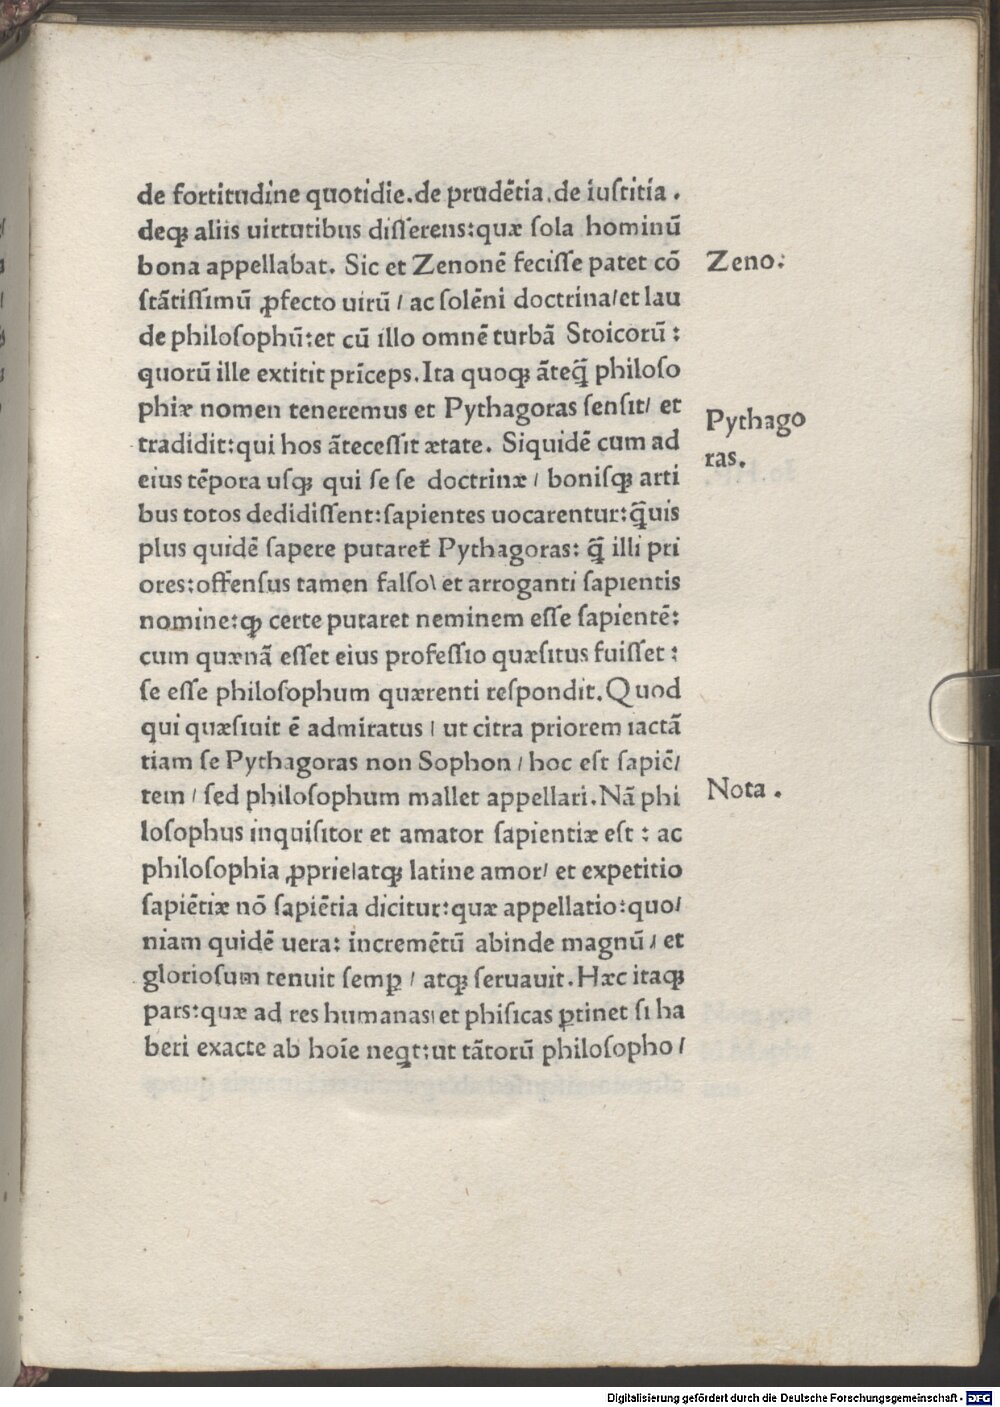 de fortitudine quotidie.de prudẽtia.de iuſtitia.
deqꝫ aliis uirtutibus diſſerens:quæ ſola hominũ
bona appellabat. Sic et Zenonẽ feciſſe patet cõ
ſtãtiſſimũ ꝓfecto uirũ / ac ſolẽni doctrina/et lau
de philoſophũ:et cũ illo omnẽ turbã Stoicorũ :
quorũ ille extitit prĩceps.Ita quoqꝫ ãteq̃ philoſo
phiæ nomen teneremus et Pythagoras ſenſit/ et
tradidit:qui hos ãteceſſit ætate. Siquidẽ cum ad
eius tẽpora uſqꝫ qui ſe ſe doctrinæ / boniſqꝫ arti
bus totos dedidiſſent:ſapientes uocarentur:q̃uis
plus quidẽ ſapere putaret᷑ Pythagoras: q̃ illi pri
ores:offenſus tamen falſo\ et arroganti ſapientis
nomine:ꝙ certe putaret neminem eſſe ſapientẽ:
cum quænã eſſet eius profeſſio quæſitus fuiſſet :
ſe eſſe philoſophum quærenti reſpondit.Quod
qui quæſiuit ẽ admiratus / ut citra priorem iactã
tiam ſe Pythagoras non Sophon / hoc eſt ſapiẽ/
tem / ſed philoſophum mallet appellari.Nã phi
loſophus inquiſitor et amator ſapientiæ eſt : ac
philoſophia ꝓprie/atqꝫ latine amor/ et expetitio
ſapiẽtiæ nõ ſapiẽtia dicitur:quæ appellatio:quo/
niam quidẽ uera: incremẽtũ abinde magnũ / et
glorioſum tenuit ſemꝑ / atqꝫ ſeruauit.Hæc itaqꝫ
pars:quæ ad res humanas/et phiſicas ꝑtinet ſi ha
beri exacte ab hoĩe neq̃t:ut tãtorũ philoſopho/
Zeno:
Pythago
ras.
Nota .
Digitalisierung gefördert durch die Deutsche Forschungsgemeinschaft - DFG